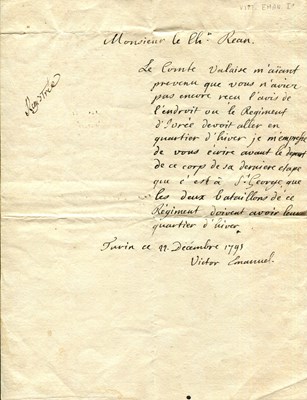 VITT. EMAN. I°
Monsieur le Ch.r Rean.
Le Comte Valaise m'aiant
prevenu que vous n'aviez
pas encore recu l'avis de
l'endroit ou le Regiment
d'Ivrée devoit aller en
quartier d'hiver je m'empresse
de vous écrire avant le depart
de ce corps de sa derniere etape
que c'est à St George que
les deux bataillons de ce
Régiment doivent avoir leurs
quartier d'hiver.
Turin ce 22 Décembre 179
Victor Emanuel.